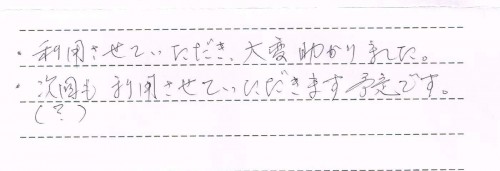 ・利用させていただき、大変助かりました。
・次回も利用させていただきます予定です。
(?)